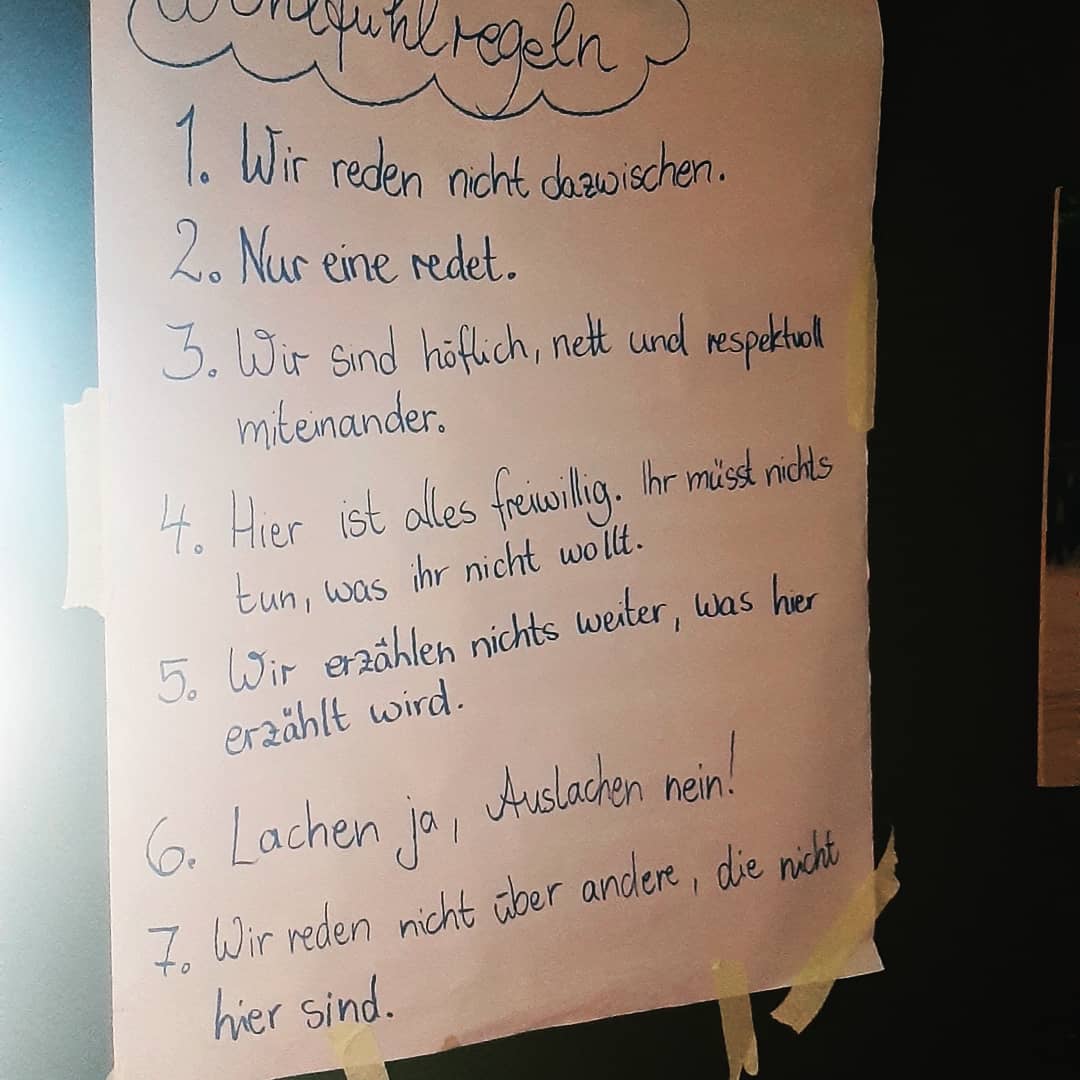 Wohlfühlregeln
1. Wir reden nicht dazwischen.
2. Nur eine redet.
3. Wir sind höflich, nett und respektvoll
miteinander.
4. Hier ist alles freiwillig. Ihr müsst nichts
tun, was ihr nicht wollt.
5. Wir erzählen nichts weiter, was hier
erzählt wird.
6. Lachen ja, Auslachen nein!
7. Wir reden nicht über andere, die nicht
hier sind.